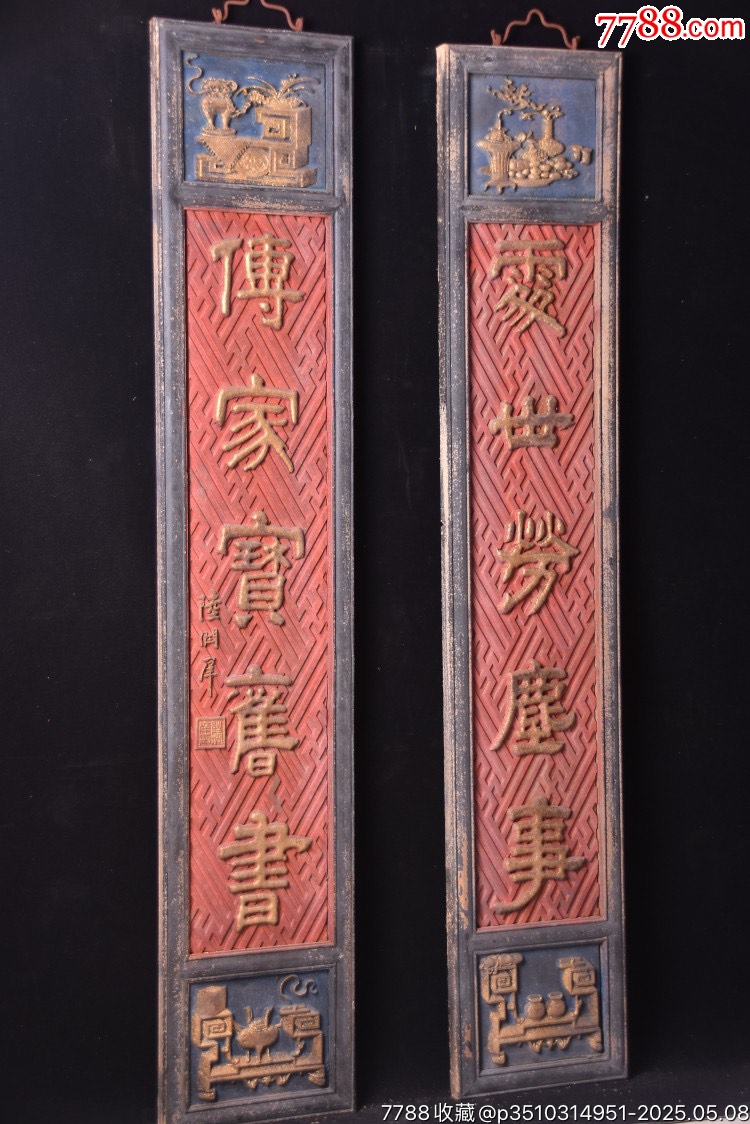 7788.com
處世勞塵事
傳家寶舊書
陸潤庠
7788收藏@p3510314951-2025.05.08